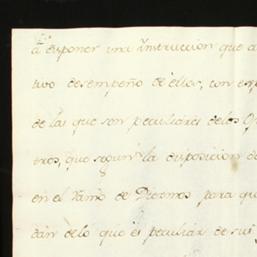 a disponer una instruccion que a
tivo desempeño de ellas, con
de las que son peculiares de los
que segun la disposicion de
en el ramo de Diezmos para que
dan de lo que es peculiar de sus